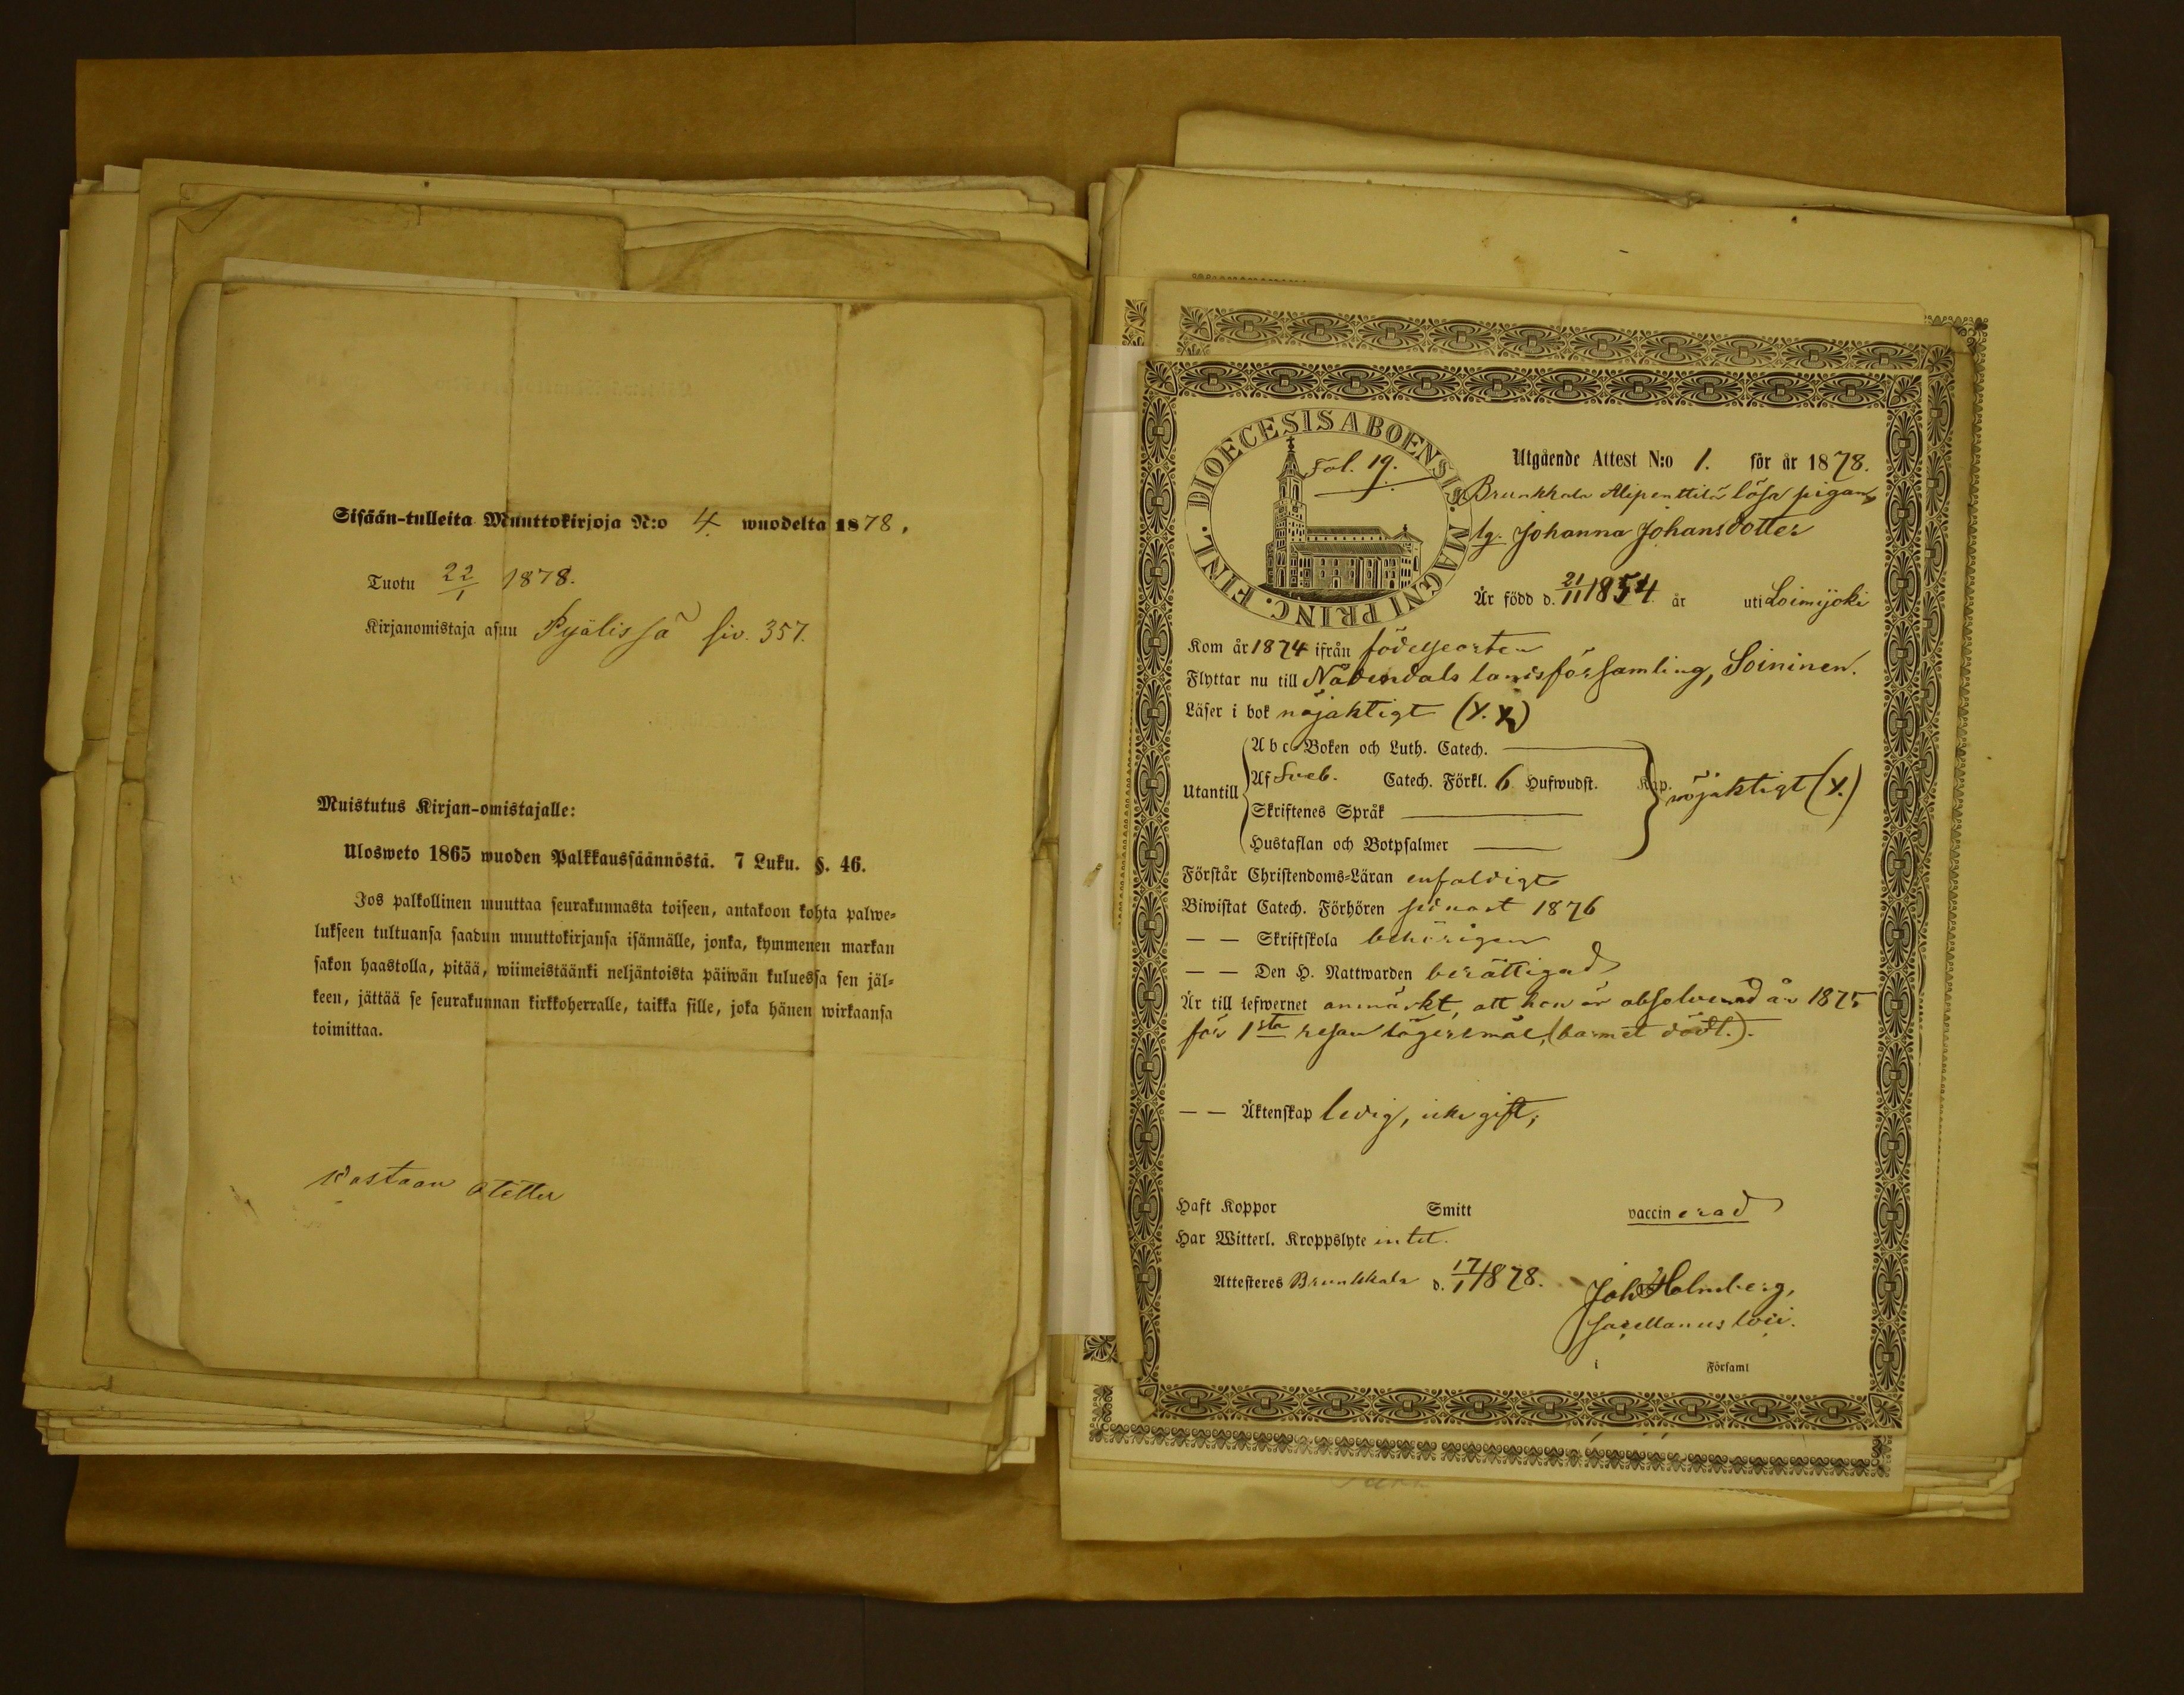 Sisään-tulleita Muuttokirjoja N:o 4. wuodelta 1878.
Tuotu 22/1 1878.
Kirjanomistaja asuu Pyälissä siv. 357.
Muistutus Kirjan-omistajalle:
Ulosweto 1865 wuoden Palkkaussäännöstä. 7 Luku. §. 46.
Jos palkollinen muuttaa seurakunnasta toiseen, antakoon kohta palwe-
lukseen tultuansa saadun muuttokirjansa isännälle, jonka, kymmenen markan
sakon haastolla, pitää, wiimeistäänki neljäntoista päiwän kuluessa sen jäl-
keen, jättää se seurakunnan kirkkoherralle, taikka sille, joka hänen wirkaansa
toimittaa.
Vastaan otettu
DIOECESIS ABOENSIS. MAGNI PRINC. FINL.
Fol. 19.
Utgående Attest N:o 1. för år 1878.
Brunkkala Alipenttilä lösa pigan
Johanna Johansdotter
Är född d. 21/11 1854 år uti Loimijoki
Kom år 1874 ifrån födelseorten
Flyttar nu till Nådendals landsförsamling, Soininen.
Läser i bok nöjaktigt
Utantill
Abc-Boken och Luth. Catech.
Af Sveb. Catech. Förkl. 6 Hufwudst. Kap. nöjaktigt
Skriftenes Språk
Hustaflan och Botpsalmer
Förstår Christendoms-Läran enfaldigt
Biwistat Catech. Förhören senast 1876
— — Skriftskola behörigen
— — Den H. Nattwarden berättigad
Är till lefwernet anmärkt, att hon är absolverad år 1875
för 1sta resan lägersmål, (barnet dödt.).
— — Äktenskap ledig, icke gift;
Haft Koppor Smitt vaccinerad
Har Witterl. Kroppslyte intet.
Attesteres Brunkkala d. 17/1 1878.
Joh Holmberg,
Sacellanus loci.
i Församl